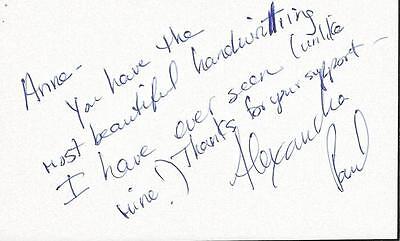 Anne-
You have the
most beautiful handwritting
I have ever seen (unlike
mine!) Thanks for your support-
Alexandra
Paul